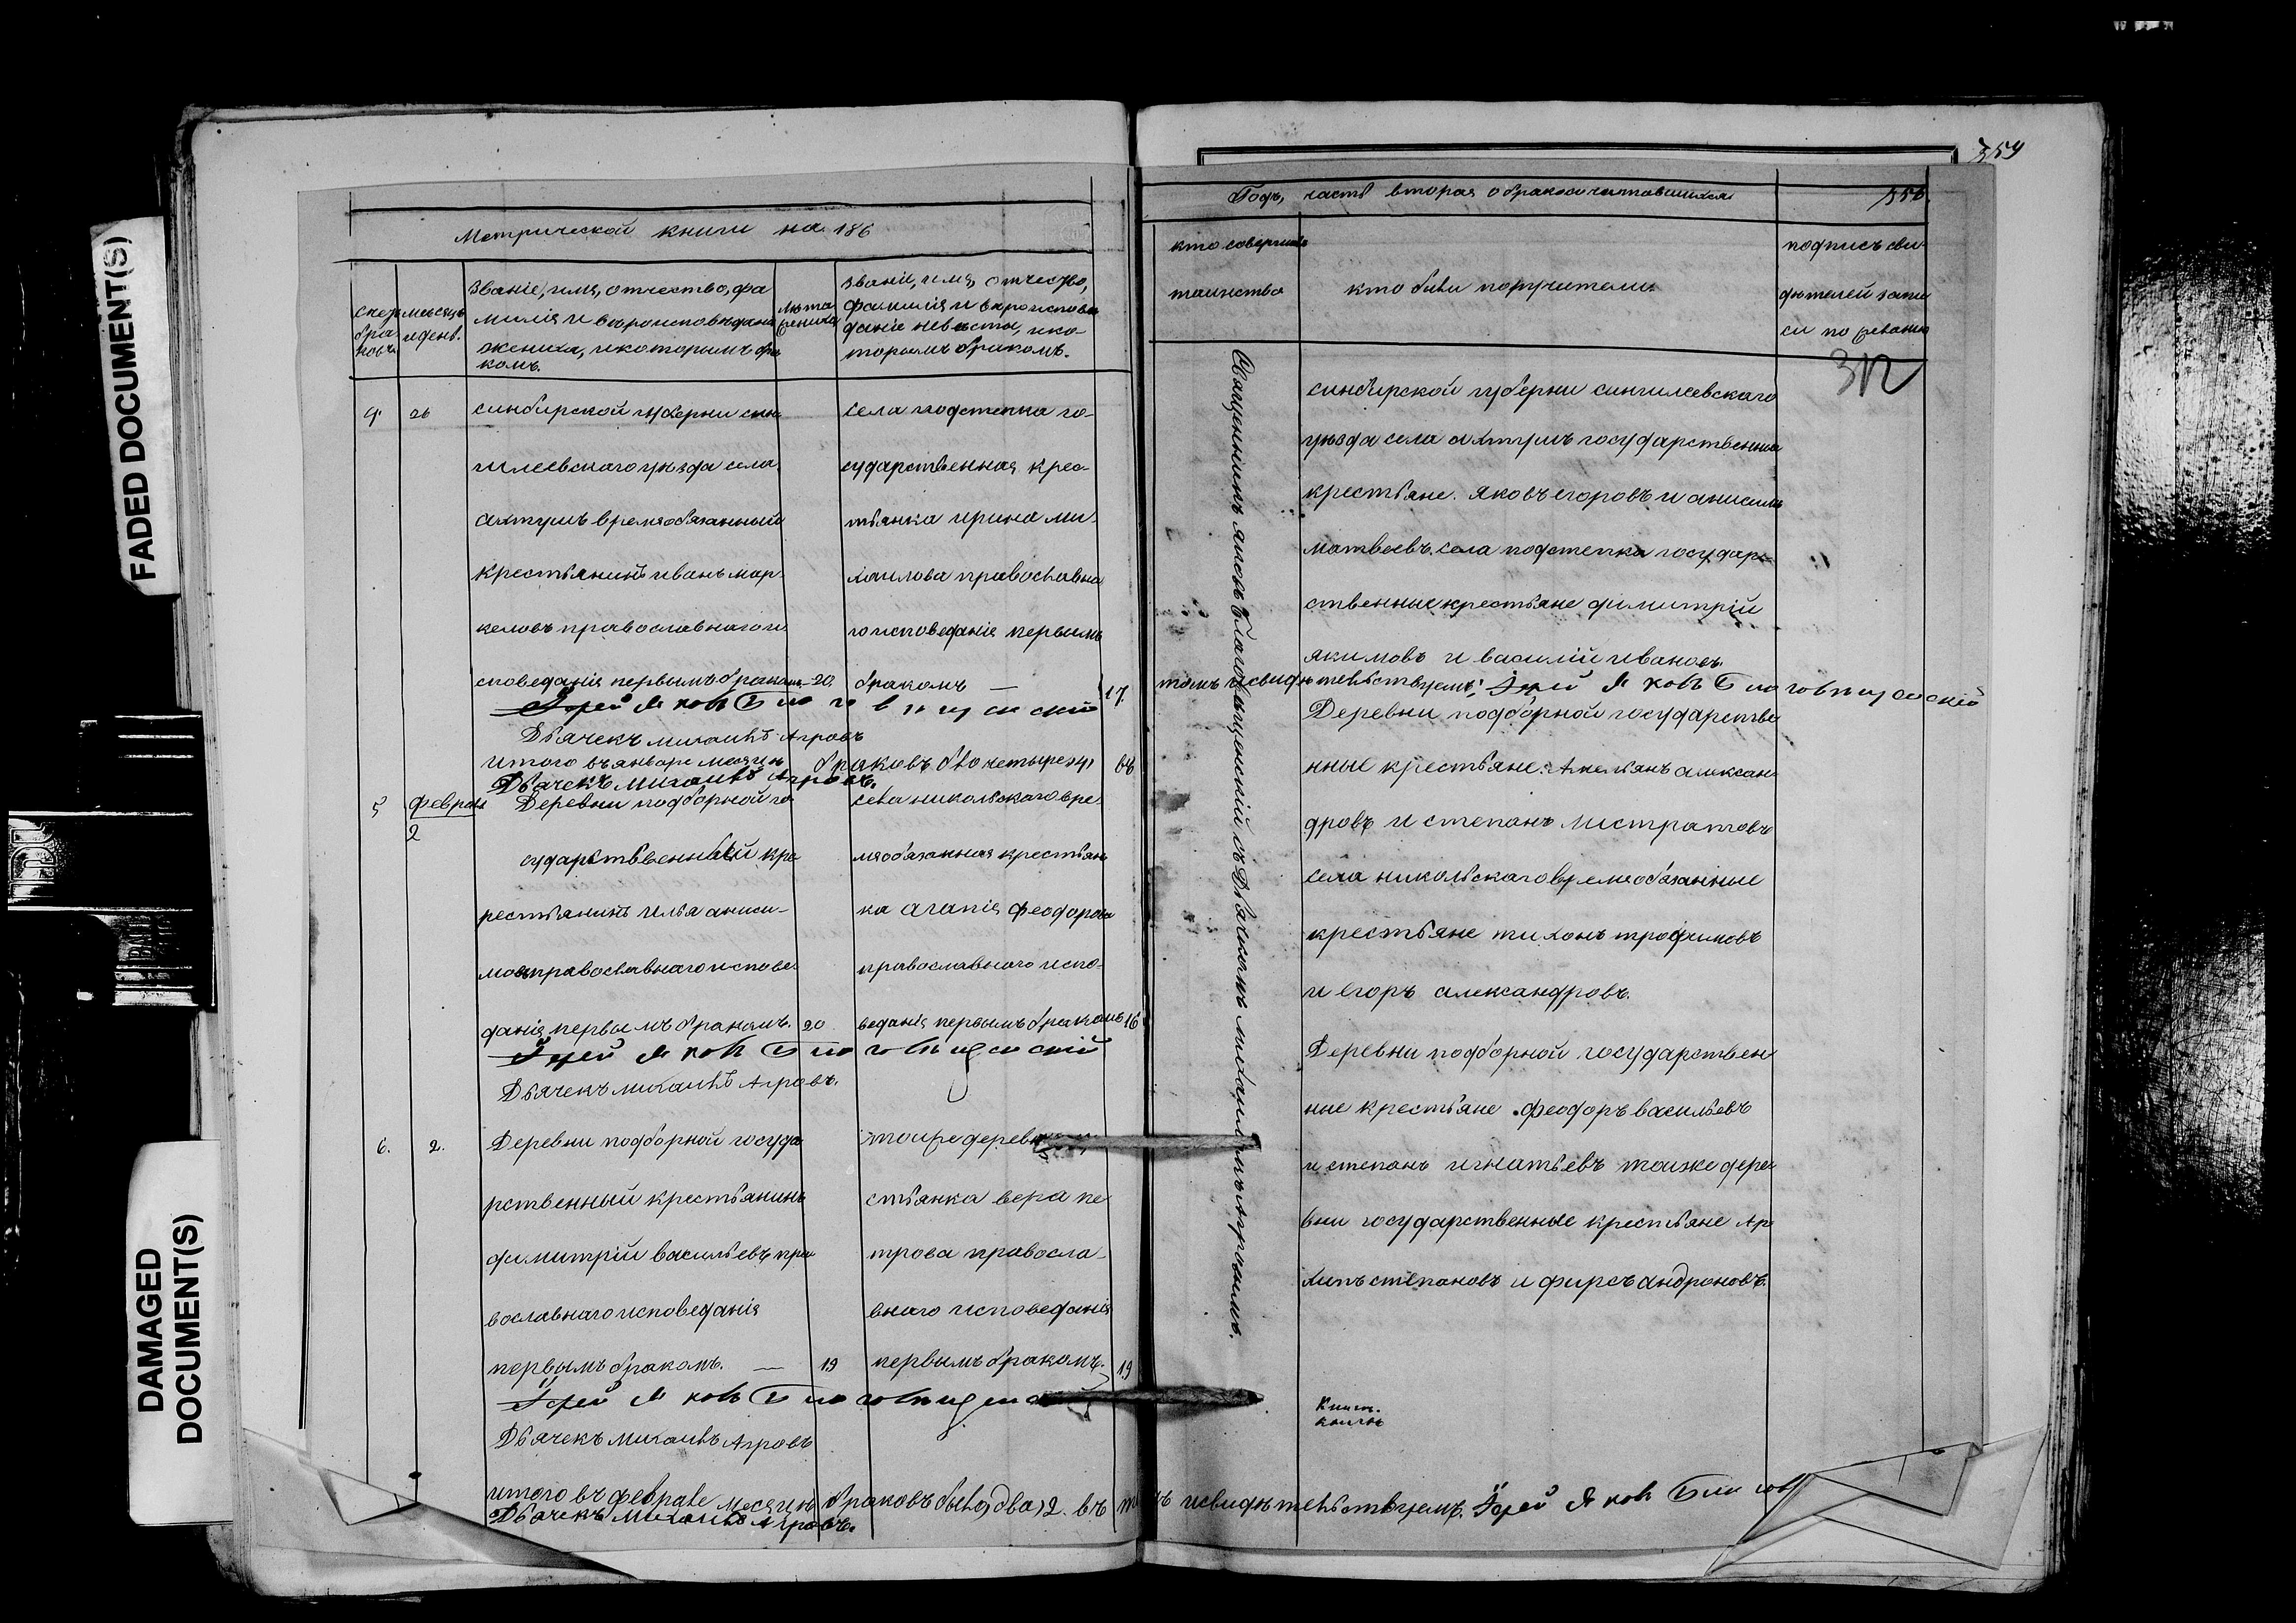 FADED DOCUMENT(S)
DAMAGED
DOCUMENT(S)
Метрической книги на 186
счет
бра
ковъ
месяцъ
и день.
Званіе, имя, отчество, фа
милія и вѣроисповѣдан
жениха, и которымъ бра
комъ.
лѣта
жениха
званіе, имя, отчество,
фамилія и вероиспове
даніе невѣсты, и ко-
торымъ бракомъ.
4 26 синбирской губерни син
гилеевскаго уѣзда села
ахтушъ времяобязанный
крестьянинъ иванъ мар-
келовъ православнаго и
споведанія первымъ бракомъ - 20.
села подстепка го-
сударственная крес-
тьянка ирина ми-
хаилова православна
го исповеданія первымъ
бракомъ — 17.
Іерей Яковъ Благовѣщенскій
Дьячекъ михаилъ Агровъ
итого въ январе месяцѣ браковъ было четыре 4 въ
Дьячекъ михаилъ Агровъ.
5 Февраля
2
Деревни подборной го
сударствьенный кре
рестьянинъ илья аниси-
мовъ православнаго испове
данія первымъ бракомъ. 20
села никольскаго вре
мяобязанная крестьян
ка агапія феодорова
православнаго испо-
веданія первымъ бракомъ 16
Іерей Яковъ Благовѣщенскій
Дьячекъ михаилъ Агровъ.
6. 2. Деревни подборной госуда
рственный крестьянинъ
димитрій васильевъ пра
вославнаго исповеданія
первымъ бракомъ. — 19
тоже деревни
стьянка вера пе
трова правосла-
внаго исповеданія
первымъ бракомъ. 19
Іерей Яковъ
Дьячекъ михаилъ Агровъ
итого въ феврале месяцѣ браковъ было два 2. въ томъ и свидѣтельствуемъ. Іерей Яковъ
Дьячекъ михаилъ Агровъ.
359
Годъ, часть вторая о бракосочитавшихся
кто совершилъ
таинство
кто были поручители
подпись сви-
дѣтелей запи
си по желанию
Священникъ яковъ Благовещенскій съ Дьячкомъ михаиломъ Агровымъ.
синбирской губерни сингилеевскаго
уѣзда села ахтушъ государственныи
крестьяне. яковъ егоровъ и анисимъ
матвеевъ. села подстепка государ-
ственные крестьяне димитрій
якимовъ и василій ивановъ.
томъ и свидѣтельствуемъ: Іерей Яковъ Благовѣщенскій
Деревни подборной государстве
нные крестьяне. Амельянъ алексан
дровъ и степанъ
села никольскаго времеобязанные
крестьяне тихонъ трофимовъ
и егоръ александровъ.
Деревни подборной государствен
ные крестьяне феодоръ васильевъ
и степанъ игнатьевъ тоиже дере
вни государственные крестьяне Ар
хипъ степановъ и фирсъ андроновъ.